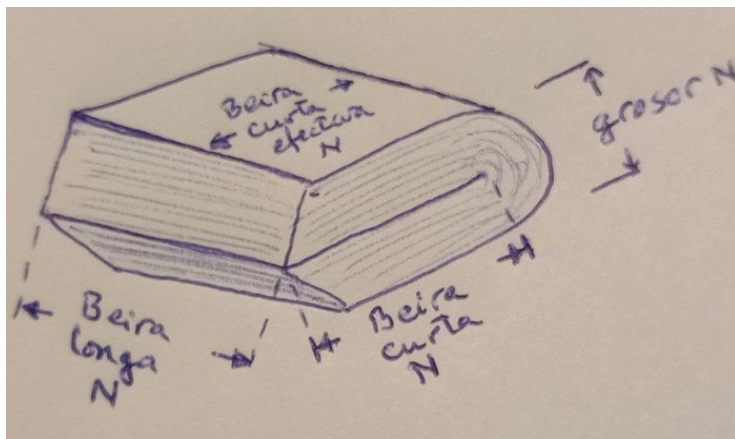 Beira
curta
efectiva
N
grosor N
Beira
longa
N
Beira
curta
N